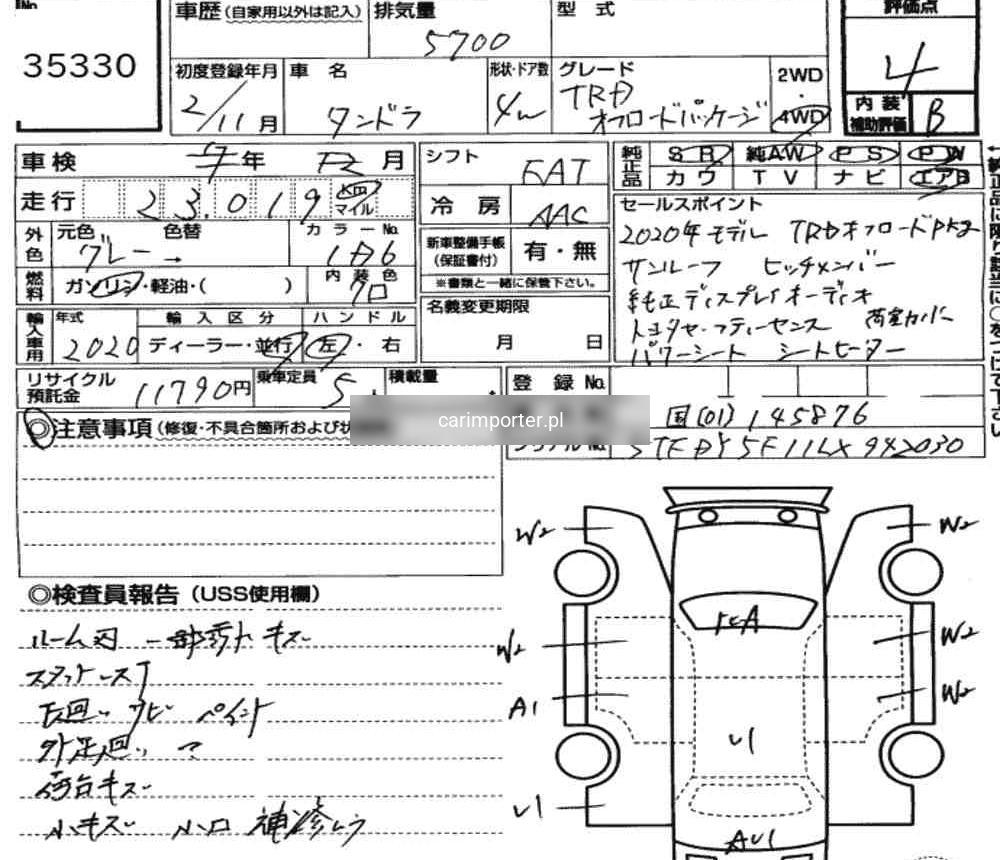 No.
35330
車歴(自家用以外は記入)
排気量
5700
型 式
評価点
4
初度登録年月
2/11月
車 名
タンドラ
形状・ドア数
4W
グレード
TRD
オフロードパッケージ
2WD
・
4WD
内 装
補助評価
B
車検
年 月
走行
23.019
Km
マイル
シフト
FAT
冷 房
AAC
純正品
S R 純AW P S P W
カワ TV ナビ エアB
外色
元色
グレー→
色替
カラーNo.
1D6
燃料
ガソリン・軽油・( )
内装色
クロ
新車整備手帳
(保証書付)
有・無
※書類と一緒に保管下さい。
セールスポイント
2020年モデル TRDオフロードPkg
サンルーフ ヒッチメンバー
純正ディスプレイオーディオ
トヨタセーフティーセンス 荷室カバー
パワーシート シートヒーター
輸入車用
年式
2020
輸 入 区 分
ディーラー・並行
ハンドル
左・右
名義変更期限
月 日
リサイクル
預託金
11790円
乗車定員
5
積載量
登 録 No.
carimporter.pl
国(01)145876
5TFDY5F11LX942030
◎注意事項(修復・不具合箇所および状
◎検査員報告(USS使用欄)
ルーム内 一部汚れ キズ
下回り サビ ペイント
外足廻り 〃
荷台キズ
小キズ 小凹 補修跡
W2
W2
W2
W2
A1
W2
U1
U1
AU1